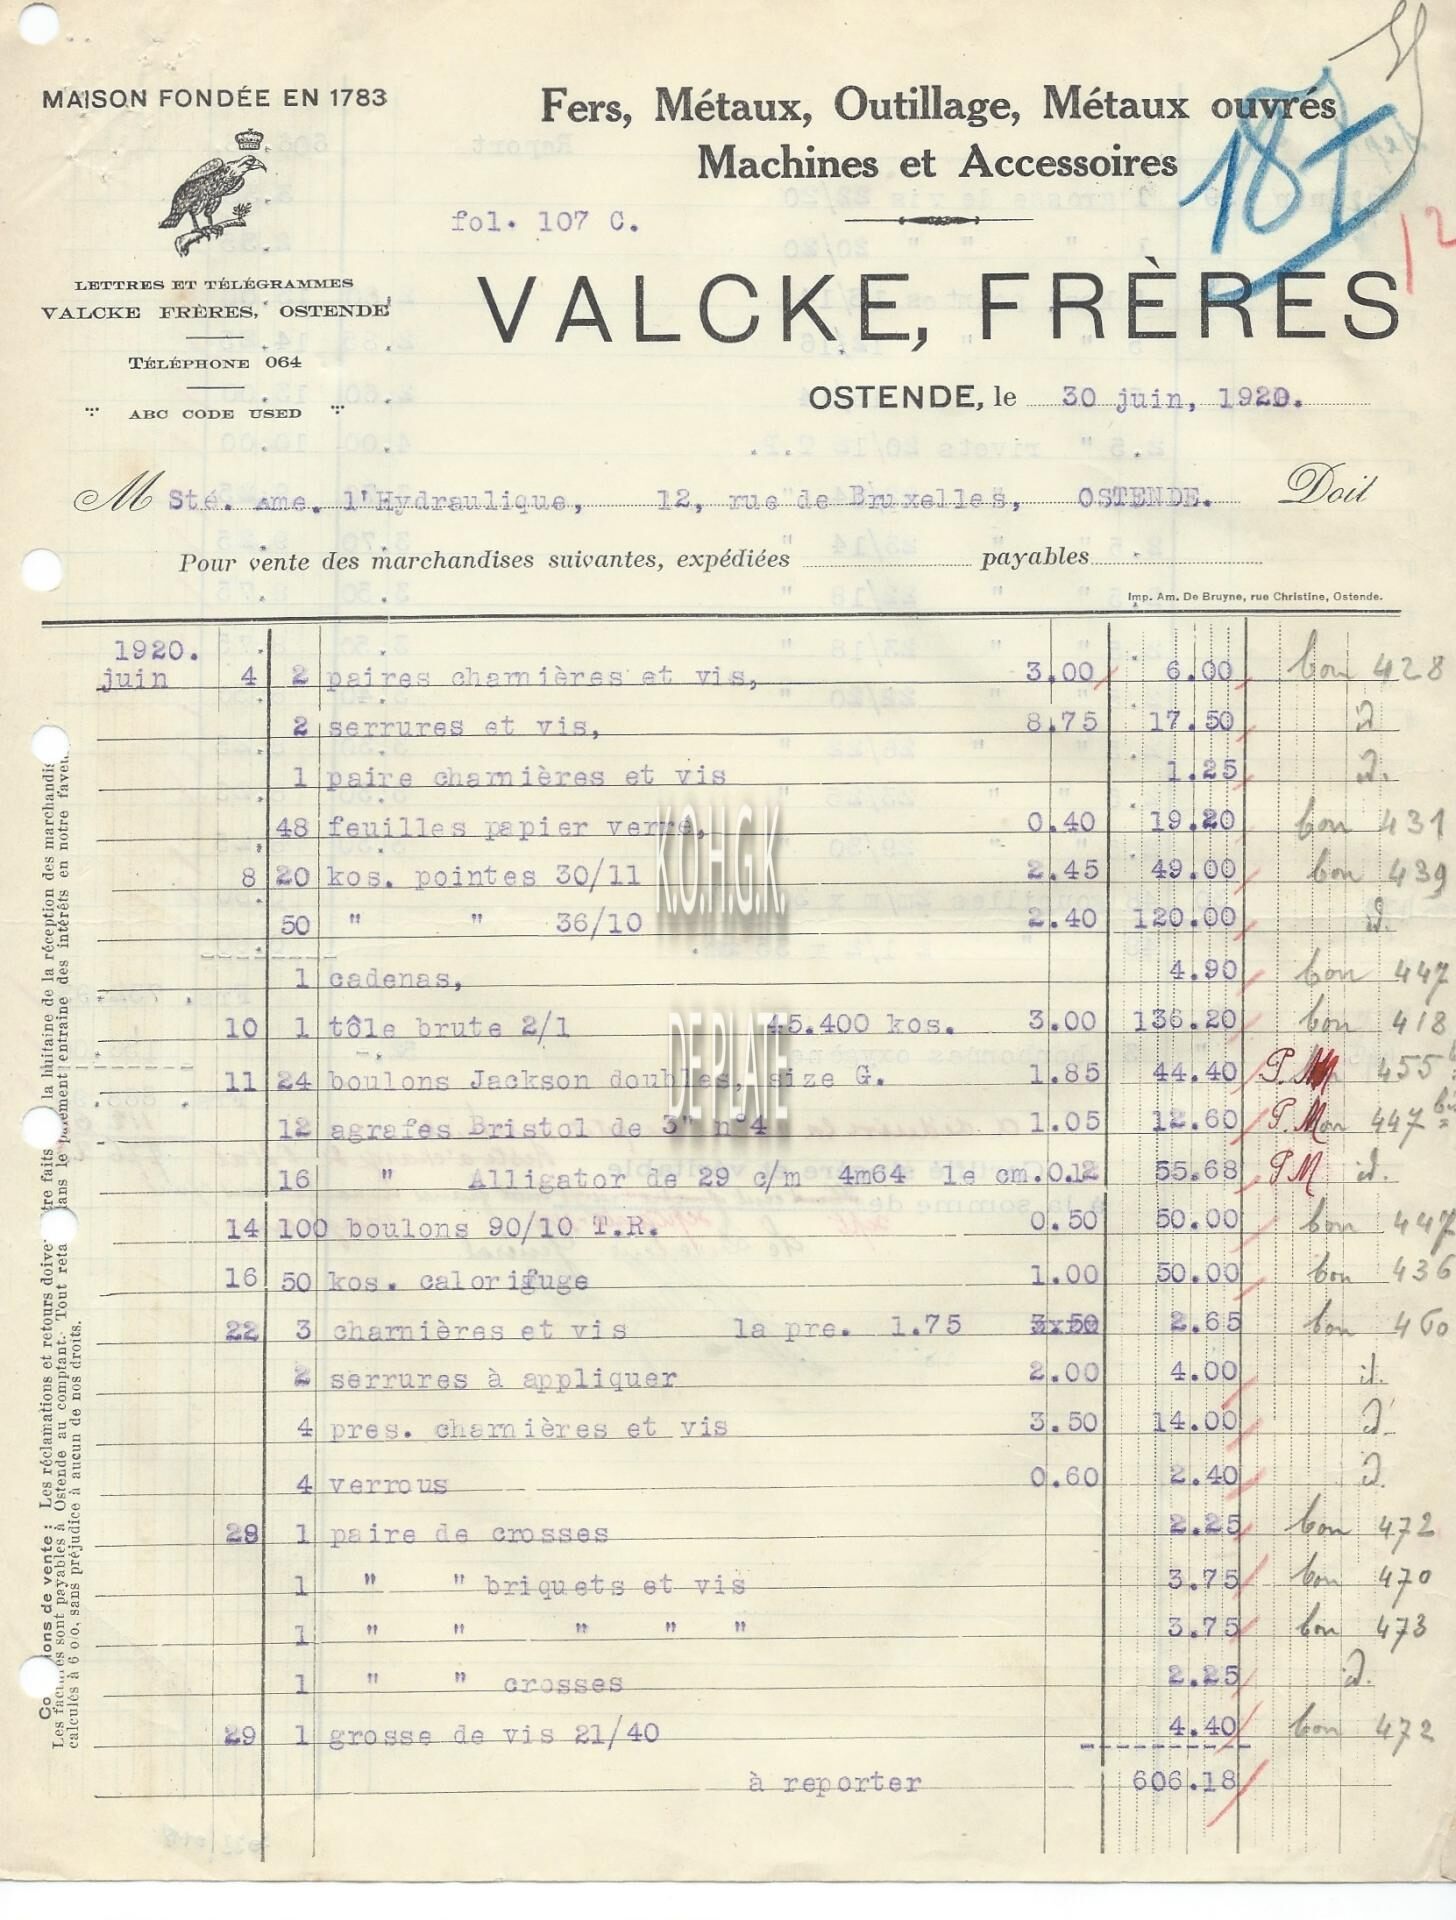 MAISON FONDÉE EN 1783
Fers, Métaux, Outillage, Métaux ouvrés
Machines et Accessoires
187
12
fol. 107 C.
LETTRES ET TÉLÉGRAMMES
VALCKE FRÈRES, OSTENDE
VALCKE, FRÈRES
TÉLÉPHONE 064
ABC CODE USED
OSTENDE, le 30 juin, 1920.
M Sté. Ame. l'Hydraulique, 12, rue de Bruxelles, OSTENDE. Doit
Pour vente des marchandises suivantes, expédiées payables
Imp. Am. De Bruyne, rue Christine, Ostende.
1920.
juin 4 2 paires charnières et vis, 3.00 6.00 bon 428
2 serrures et vis, 8.75 17.50 d.
1 paire charnières et vis 1.25 d.
48 feuilles papier verre, 0.40 19.20 bon 431
8 20 kos. pointes 30/11 2.45 49.00 bon 439
50 " " 36/10 2.40 120.00 d.
1 cadenas, 4.90 bon 447
10 1 tôle brute 2/1 45.400 kos. 3.00 136.20 bon 418
11 24 boulons Jackson doubles, size G. 1.85 44.40 P.M 455
12 agrafes Bristol de 3" n°4 1.05 12.60 P.M 447 bis
16 " Alligator de 29 c/m 4m64 le cm.0.12 55.68 PM d.
14 100 boulons 90/10 T.R. 0.50 50.00 bon 447
16 50 kos. calorifuge 1.00 50.00 bon 436
22 3 charnières et vis la pre. 1.75 3x50 2.65 bon 460
2 serrures à appliquer 2.00 4.00 d.
4 pres. charnières et vis 3.50 14.00 d.
4 verrous 0.60 2.40 d.
28 1 paire de crosses 2.25 bon 472
1 " " briquets et vis 3.75 bon 470
1 " " " " " 3.75 bon 473
1 " " crosses 2.25 d.
29 1 grosse de vis 21/40 4.40 bon 472
à reporter 606.18
K.O.H.G.K.
DE PLATE
ions de vente : Les réclamations et retours doive tre faits la huitaine de la réception des marchandis
Les factures sont payables à Ostende au comptant. Tout reta dans le paiement entraine des intérêts en notre faveu
calculés à 6 o/o, sans préjudice à aucun de nos droits.